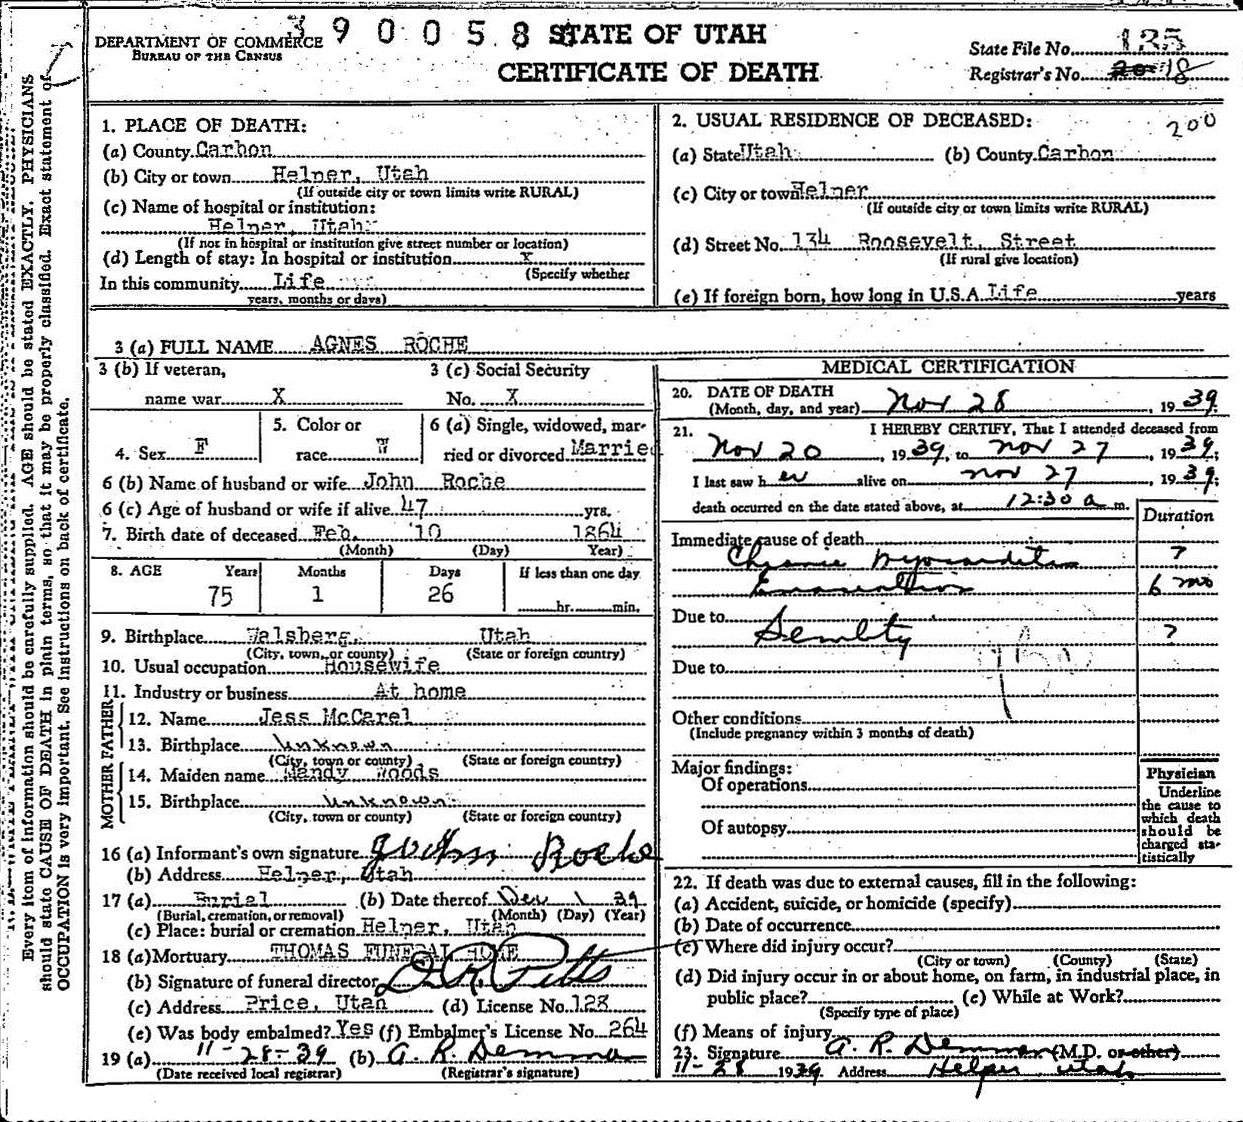 390058 STATE OF UTAH
DEPARTMENT OF COMMERCE
BUREAU OF THE CENSUS
CERTIFICATE OF DEATH
State File No. 135
Registrar's No. 20 18
200
Every item of information should be carefully supplied. AGE should be stated EXACTLY. PHYSICIANS
should state CAUSE OF DEATH in plain terms, so that it may be properly classified. Exact statement of
OCCUPATION is very important. See instructions on back of certificate.
1. PLACE OF DEATH:
(a) County Carbon
(b) City or town Helper, Utah
(If outside city or town limits write RURAL)
(c) Name of hospital or institution:
Helper, Utah
(If not in hospital or institution give street number or location)
(d) Length of stay: In hospital or institution X
(Specify whether
In this community Life
years, months or days)
2. USUAL RESIDENCE OF DECEASED:
(a) State Utah (b) County Carbon
(c) City or town Helper
(If outside city or town limits write RURAL)
(d) Street No. 134 Roosevelt Street
(If rural give location)
(e) If foreign born, how long in U.S.A. Life years
3 (a) FULL NAME AGNES ROCHE
3 (b) If veteran,
name war X
3 (c) Social Security
No. X
4. Sex F
5. Color or
race W
6 (a) Single, widowed, mar-
ried or divorced Married
6 (b) Name of husband or wife John Roche
6 (c) Age of husband or wife if alive 47 yrs.
7. Birth date of deceased Feb. 10 1864
(Month) (Day) Year)
8. AGE Years Months Days If less than one day
75 1 26 hr. min.
9. Birthplace Walsberg, Utah
(City, town, or county) (State or foreign country)
10. Usual occupation Housewife
11. Industry or business At home
FATHER
12. Name Jess McCarel
13. Birthplace Unknown
(City, town or county) (State or foreign country)
MOTHER
14. Maiden name Mandy Woods
15. Birthplace Unknown
(City, town or county) (State or foreign country)
16 (a) Informant's own signature Roche
(b) Address Helper, Utah
17 (a) Burial (b) Date thereof Dec 1 39
(Burial, cremation, or removal) (Month) (Day) (Year)
(c) Place: burial or cremation Helper, Utah
18 (a) Mortuary THOMAS FUNERAL HOME
(b) Signature of funeral director Pitts
(c) Address Price, Utah (d) License No. 128
(e) Was body embalmed? Yes (f) Embalmer's License No. 264
19 (a) 11-28-39 (b) A. R. Demman
(Date received local registrar) (Registrar's signature)
MEDICAL CERTIFICATION
20. DATE OF DEATH
(Month, day, and year) Nov 28, 1939.
21. I HEREBY CERTIFY, That I attended deceased from
Nov 20, 1939, to Nov 27, 1939;
I last saw h er alive on Nov 27, 1939;
death occurred on the date stated above, at 12:30 a m.
Duration
Immediate cause of death
Chronic Myocarditis ?
Emaciation 6 mo
Due to Senility ?
Due to
Other conditions
(Include pregnancy within 3 months of death)
Major findings:
Of operations
Of autopsy
Physician
Underline
the cause to
which death
should be
charged sta-
tistically
22. If death was due to external causes, fill in the following:
(a) Accident, suicide, or homicide (specify)
(b) Date of occurrence
(c) Where did injury occur?
(City or town) (County) (State)
(d) Did injury occur in or about home, on farm, in industrial place, in
public place? (e) While at Work?
(Specify type of place)
(f) Means of injury
23. Signature A. R. Demman (M.D. or other)
11-28 1939 Address Helper Utah